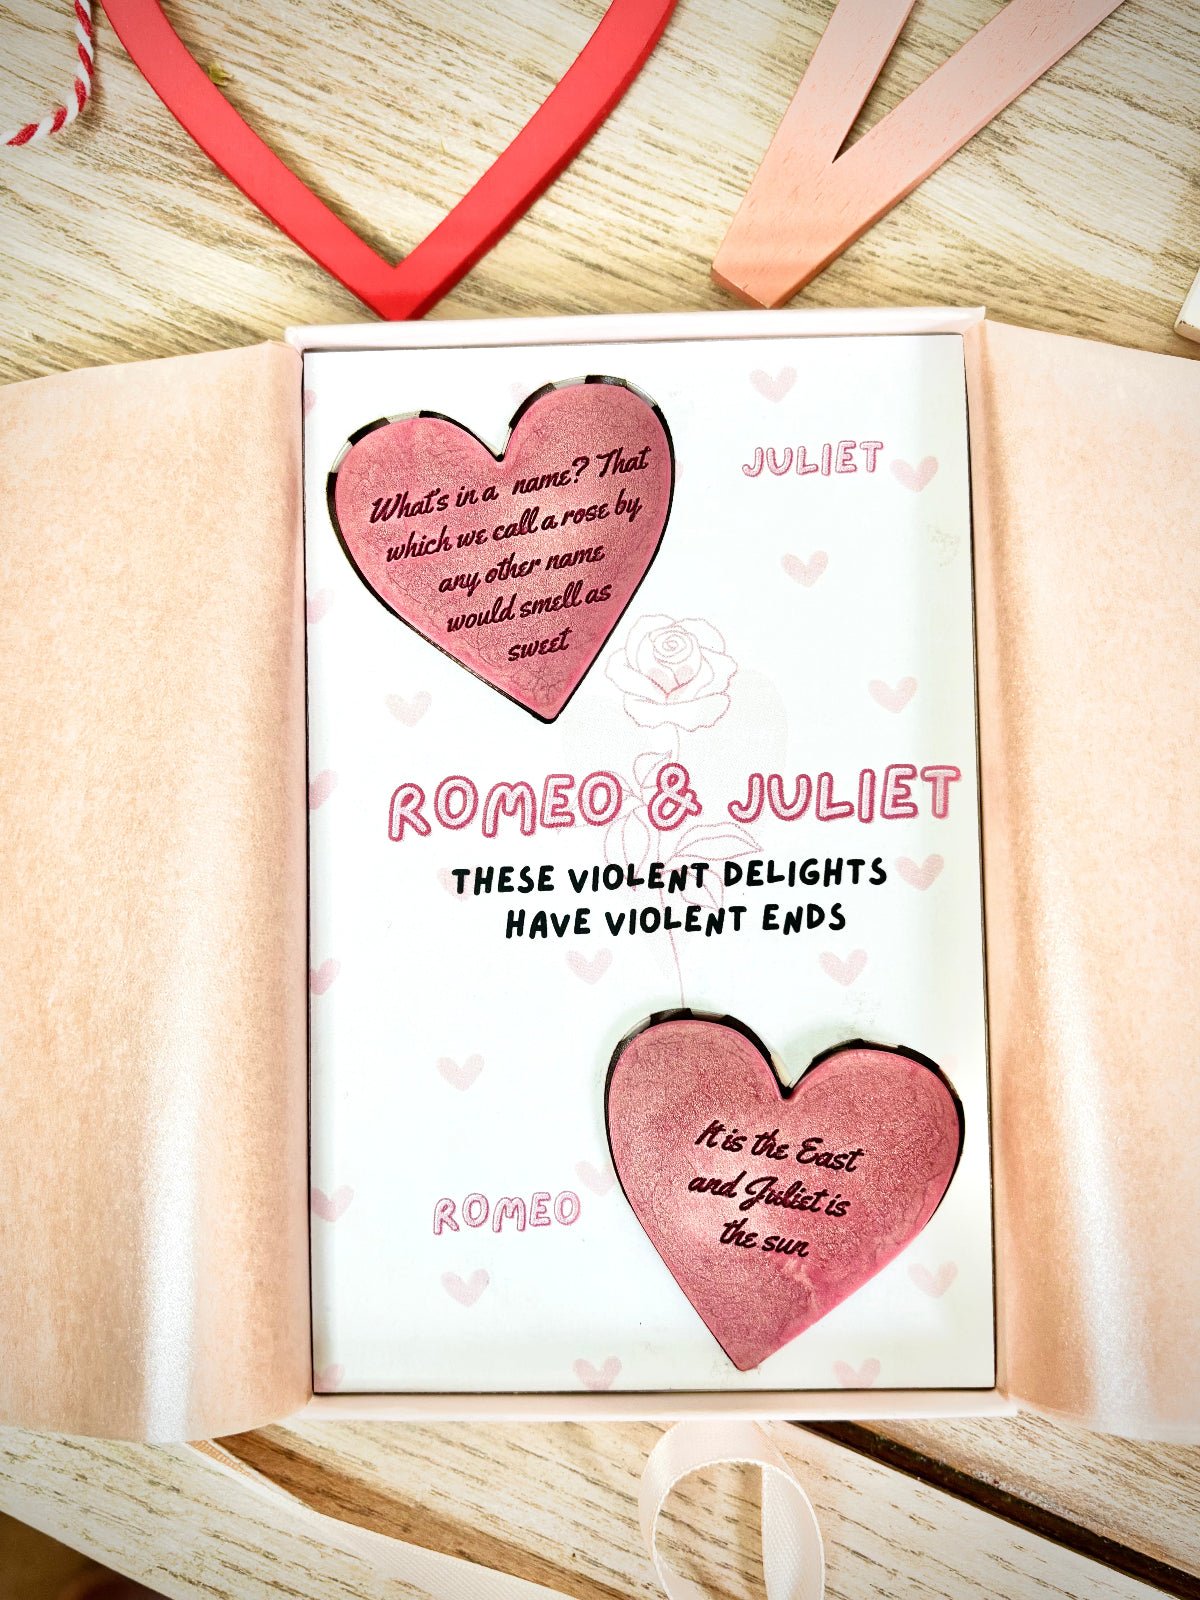 What's in a name? That
which we call a rose by
any other name
would smell as
sweet
JULIET
ROMEO & JULIET
THESE VIOLENT DELIGHTS
HAVE VIOLENT ENDS
It is the East
and Juliet is
the sun
ROMEO